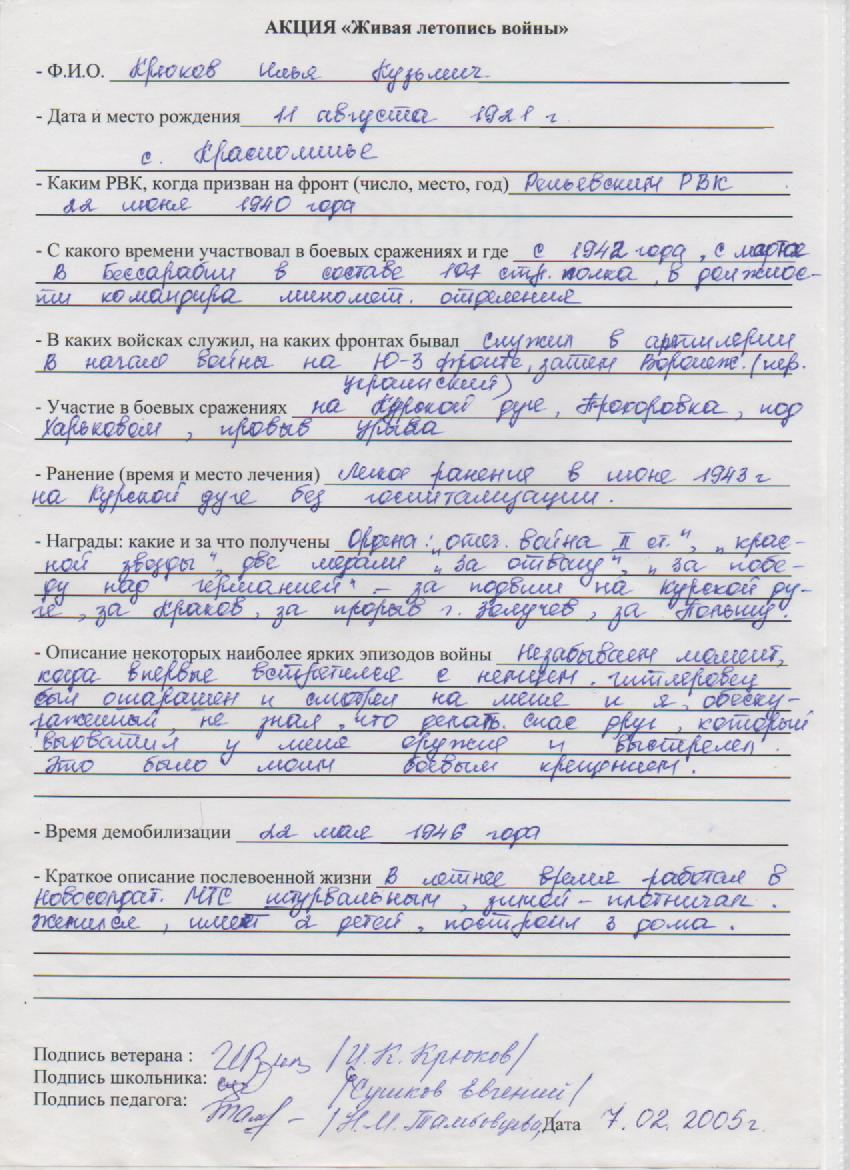 АКЦИЯ «Живая летопись войны»
- Ф.И.О. Крюков Илья Кузьмич
- Дата и место рождения 11 августа 1921 г.
с. Краснолипье
- Каким РВК, когда призван на фронт (число, место, год) Репьевским РВК
22 июня 1940 года
- С какого времени участвовал в боевых сражениях и где с 1942 года, с марта
В Бессарабии в составе стр. полка, в должнос-
ти командира миномет. отделения
- В каких войсках служил, на каких фронтах бывал служил в артилерии
В начале войны на Ю-З фронте, затем Воронеж. (пер.
украинский)
- Участие в боевых сражениях на Курской дуге, Прохоровка, под
Харьковом,
- Ранение (время и место лечения) Легкое ранение в июне 1943 г
на Курской дуге без госпитализации.
- Награды: какие и за что получены Ордена: "отеч. война II ст.", "крас-
ной звезды", две медали "за отвагу", "за побе-
ду над германией" – за подвиги на Курской ду-
ге, за Краков, за прорыв г. за Польшу.
- Описание некоторых наиболее ярких эпизодов войны Незабываем момент,
когда впервые встретился с немцем. гитлеровец
был ошарашен и смотрел на меня и я, обеску-
раженный, не знал, что делать. спас друг, который
выхватил у меня оружие и выстрелел.
Это было моим боевым крещением.
- Время демобилизации 22 мая 1946 года
- Краткое описание послевоенной жизни В летнее время работал в
Новосолдат. МТС штурвальным, зимой – плотничал.
Женился, имеет 2 детей, построил 3 дома.
Подпись ветерана : /И.К. Крюков/
Подпись школьника: /Сушков Евгений/
Подпись педагога: /Н.М. Тамбовцева/ Дата 7.02.2005г.